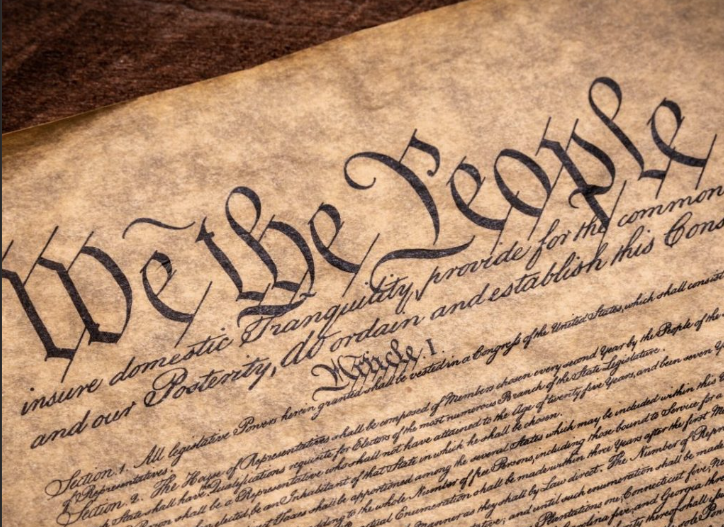 We the People
insure domestic Tranquility, provide for the common
and our Posterity, do ordain and establish this Cons
Article. I.
Section. 1. All legislative Powers herein granted shall be vested in a Congress of the United States, which shall consist
of Representatives.
Section. 2. The House of Representatives shall be composed of Members chosen every second Year by the People of the
State shall have Qualifications requisite for Electors of the most numerous Branch of the State Legislature.
Person shall be a Representative who shall not have attained to the Age of twenty five Years, and been seven Y
elected, be an Inhabitant of that State in which he shall be chosen.
shall be apportioned among the several States which may be included within this
to the whole Number of free Persons, including those bound to Service for a
Enumeration shall be made within three Years after the first
Manner as they shall by Law direct. The Number of Repre
and until such enumeration shall be made
Plantations one, Connecticut five,
five, and Georgia